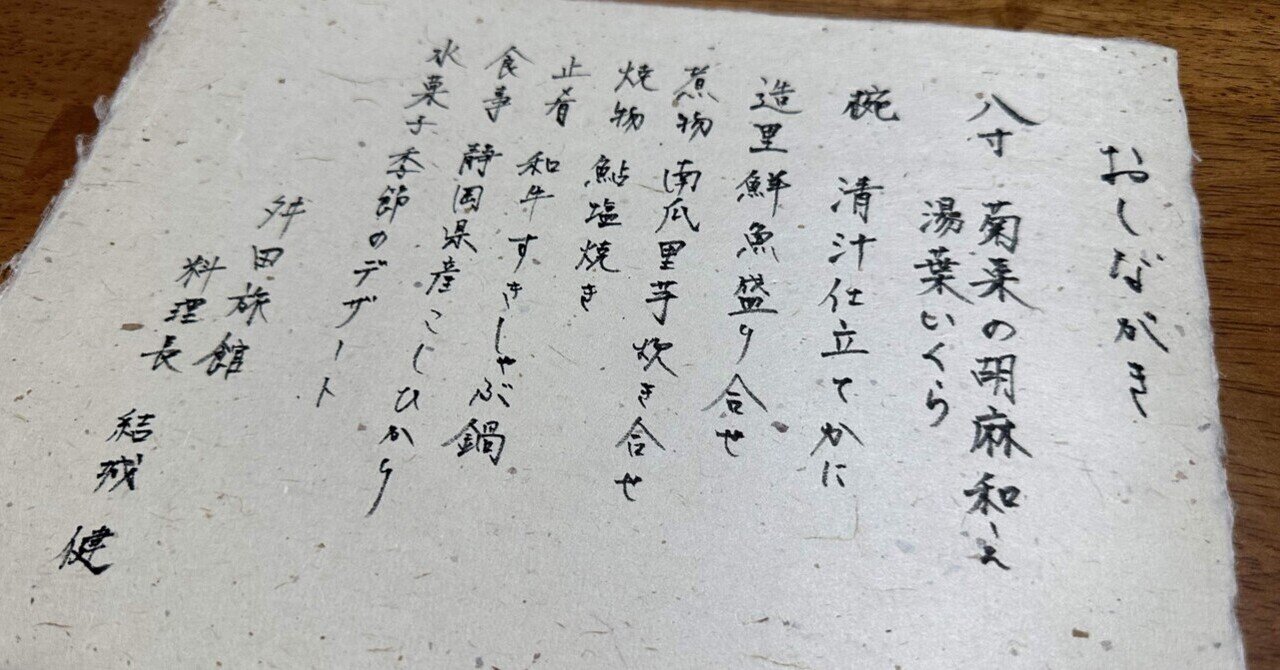 おしながき
八寸 菊菜の胡麻和え
湯葉いくら
椀 清汁仕立てかに
造里 鮮魚盛り合せ
煮物 南瓜里芋炊き合せ
焼物 鮎塩焼き
止肴 和牛すきしゃぶ鍋
食事 静岡県産こしひかり
水菓子 季節のデザート
舛田旅館
料理長
結城 健